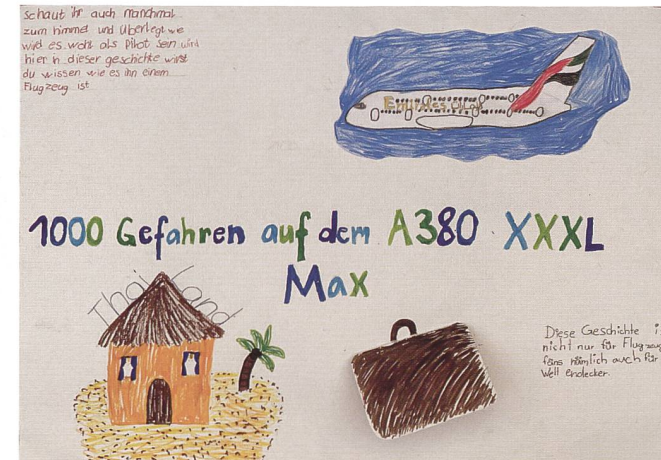 Schaut ihr auch manchmal
zum himmel und überlegt we
wird es wohl als Pilot sein und
hier in dieser geschichte wirst
du wissen wie es ihn einem
Flugzeug ist
Emirates
1000 Gefahren auf dem A380 XXXL
Max
Thailand
Diese Geschichte i
nicht nur für Flugzeug
fäns nämlich auch für
Welt endecker.